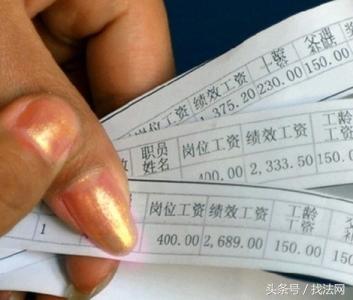 岗位工资 绩效工资 工龄 父补
1,375.20 230.00 150.00
职员 岗位工资 绩效工资 工龄
姓名 工资
400.00 2,333.50 150.0
岗位工资 绩效工资 工龄
工资
1 400.00 2,689.00 150.00 150
头条号 / 找法网